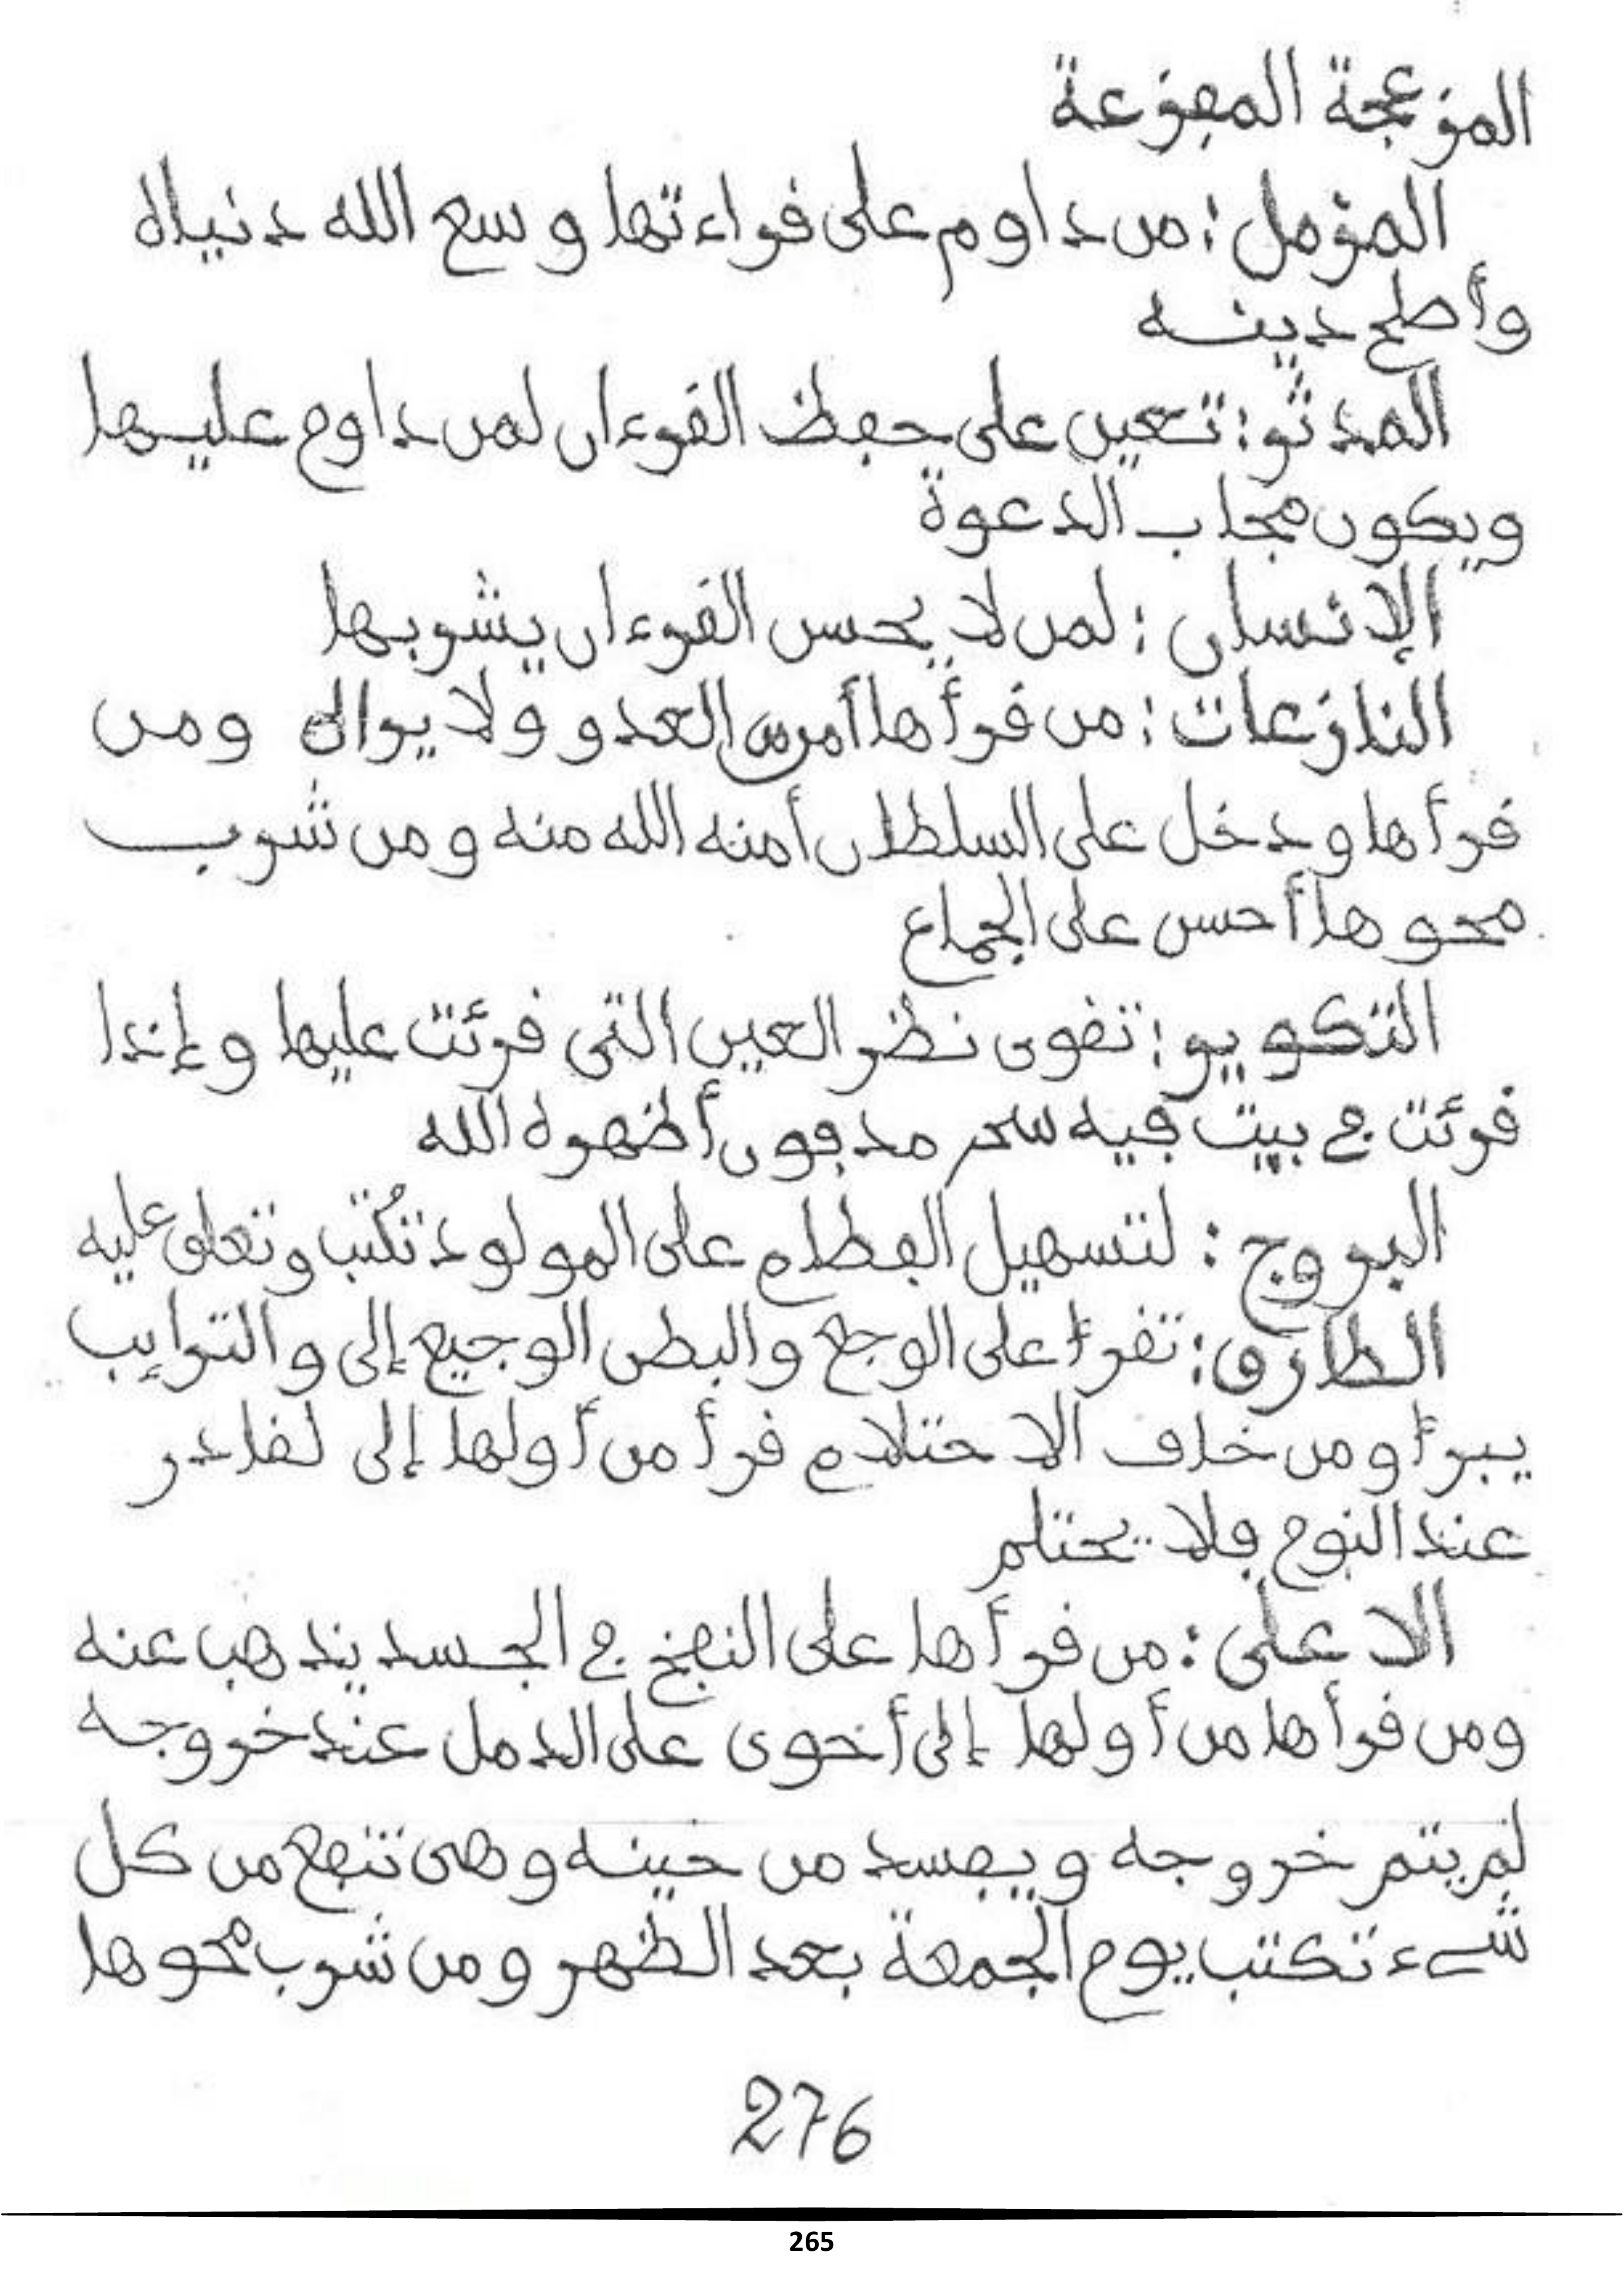 المزعجة المفزعة
المزمل : من داوم على قراءتها وسع الله دنياه
وأصلح دينه
المدثر : تعين على حفظ القرءان لمن داوم عليها
ويكون مجاب الدعوة
الإنسان : لمن لا يحسن القرءان يشربها
النازعات : من قرأها أمن من العدو ولا يراه ومن
قرأها ودخل على السلطان أمنه الله منه ومن شرب
محوها أحسن على الجماع
التكوير : تقوى نظر العين التى قرئت عليها وإذا
قرئت في بيت فيه سحر مدفون أظهره الله
البروج : لتسهيل الفطام على المولود تُكتب وتعلق عليه
الطارق : تقرأ على الوجع والبطن الوجيع إلى والترايب
يبرأ ومن خاف الاحتلام قرأ من أولها إلى لقادر
عند النوم فلا يحتلم
الاعلى : من قرأها على النفخ في الجسد يذهب عنه
ومن قرأها من أولها إلى أحوى على الدمل عند خروجه
لم يتم خروجه ويفسد من حينه وهى تنفع من كل
شىء تكتب يوم الجمعة بعد الظهر ومن شرب محوها
276
265